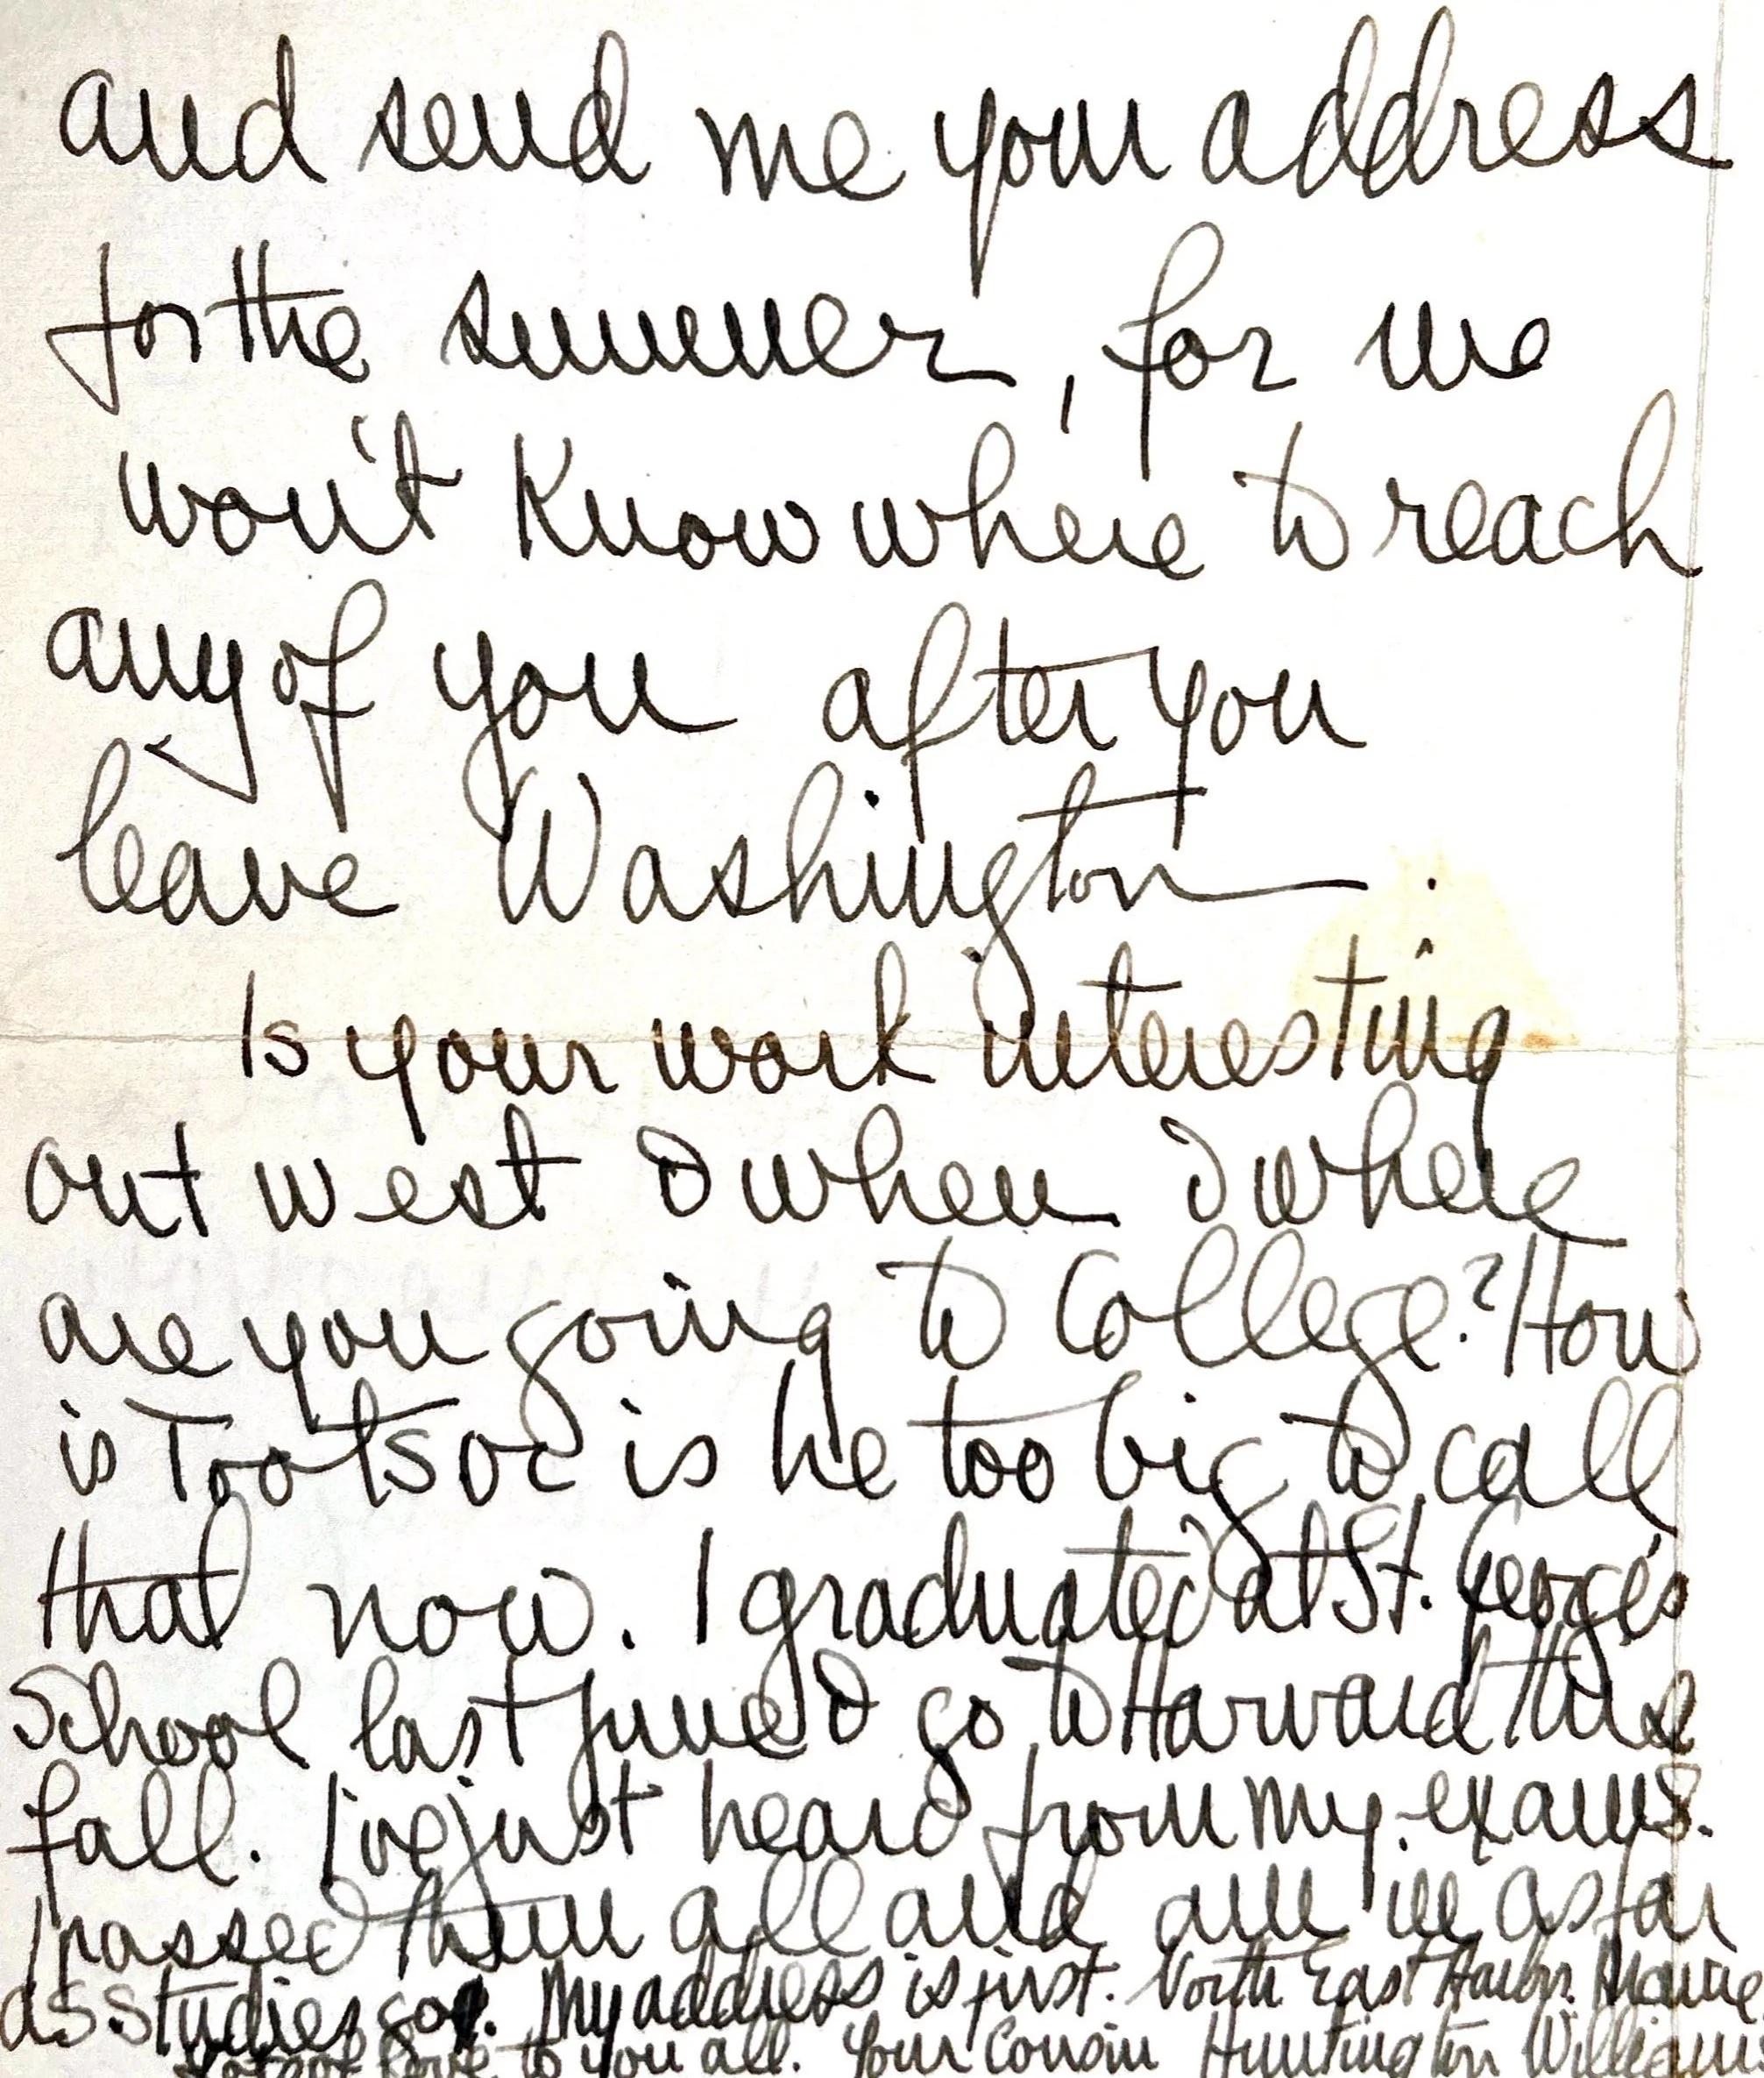 and send me your address
for the summer, for we
won't know where to reach
any of you after you
leave Washington.
Is your work interesting
out west & when & where
are you going to College? How
is Tootsoc is he too big to call
that now. I graduated at St. George's
School last June & go to Harvard this
fall. I've just heard from my exams.
I passed them all and am in as far
as studies go. My address is just. North East Harbor. Maine
Lots of love to you all. Your Cousin Huntington Williams